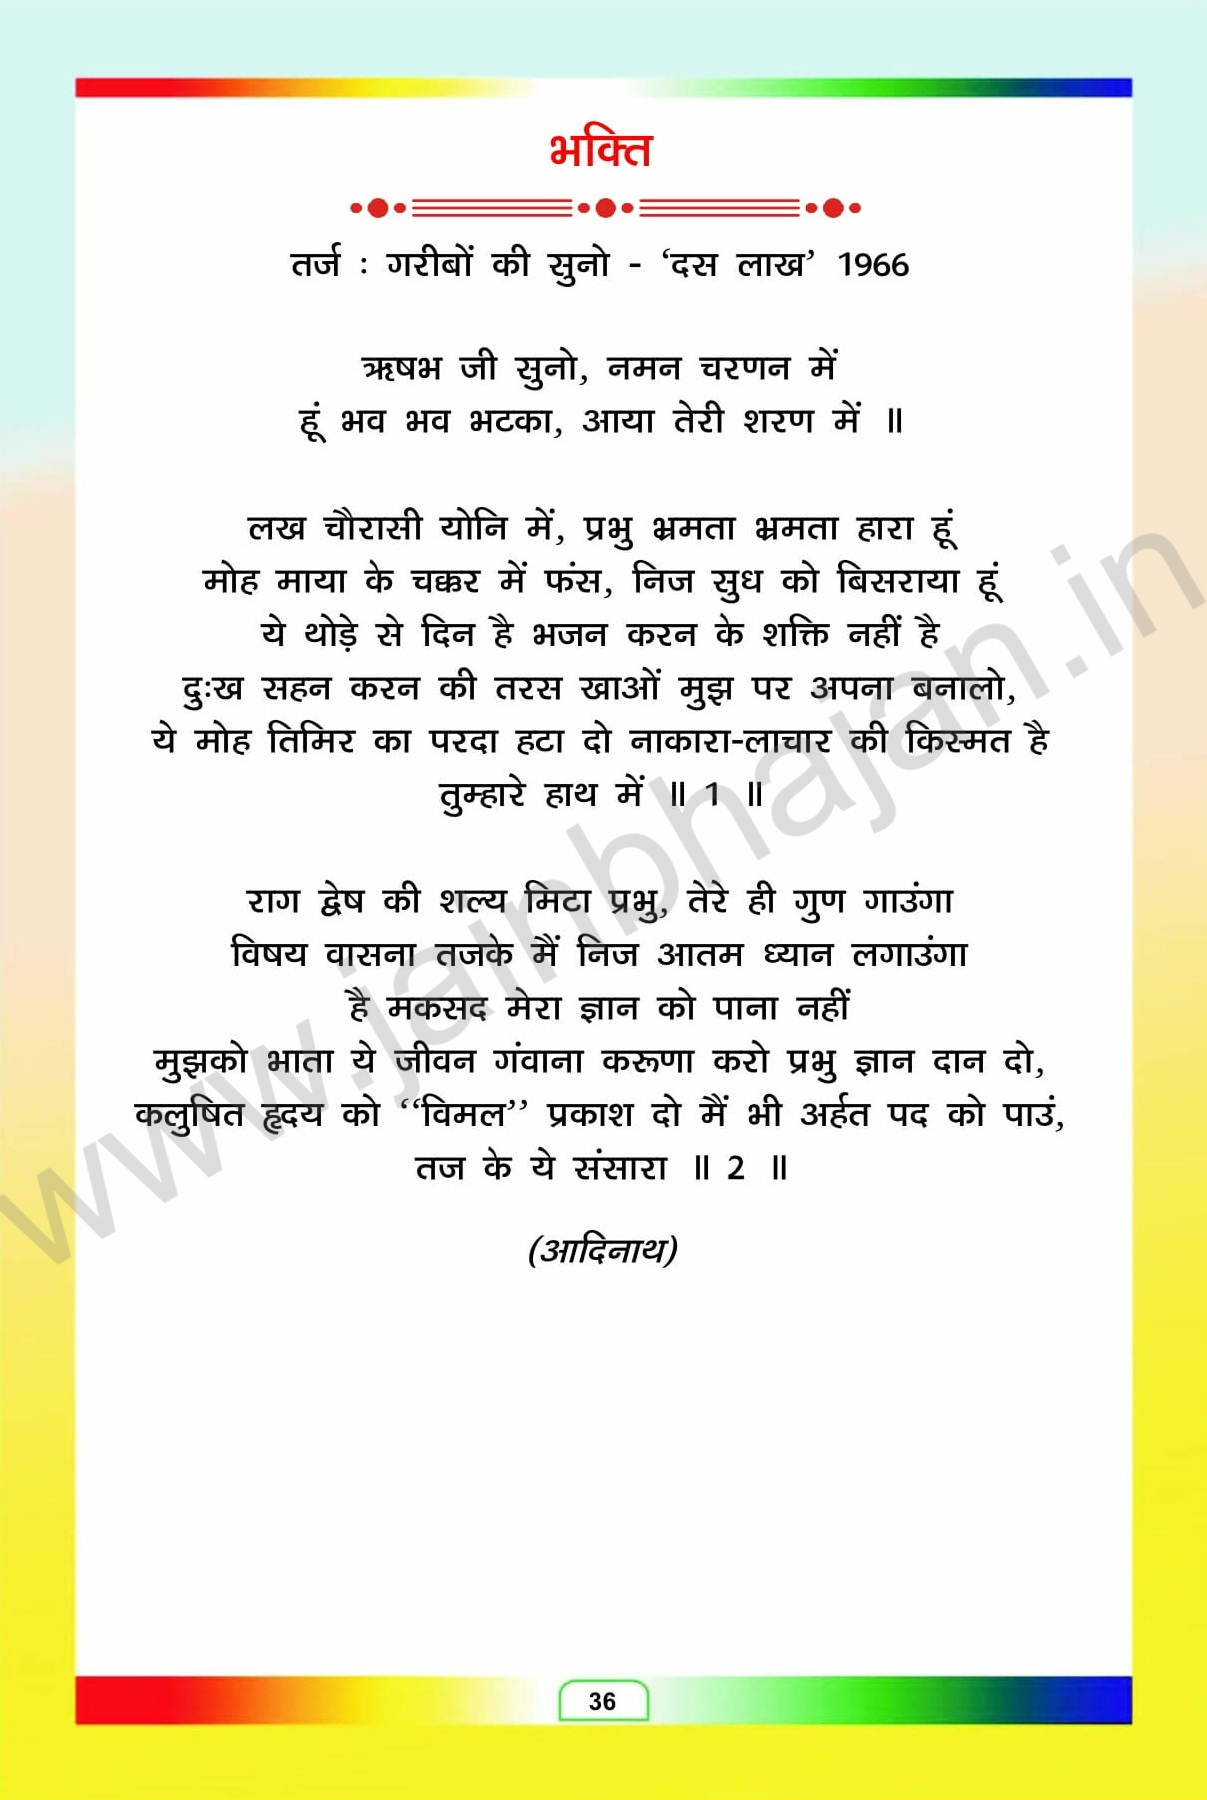 भक्ति
तर्ज : गरीबों की सुनो - ‘दस लाख’ 1966
ऋषभ जी सुनो, नमन चरणन में
हूं भव भव भटका, आया तेरी शरण में ॥
लख चौरासी योनि में, प्रभु भ्रमता भ्रमता हारा हूं
मोह माया के चक्कर में फंस, निज सुध को बिसराया हूं
ये थोड़े से दिन है भजन करन के शक्ति नहीं है
दुःख सहन करन की तरस खाओं मुझ पर अपना बनालो,
ये मोह तिमिर का परदा हटा दो नाकारा-लाचार की किस्मत है
तुम्हारे हाथ में ॥ 1 ॥
राग द्वेष की शल्य मिटा प्रभु, तेरे ही गुण गाउंगा
विषय वासना तजके मैं निज आतम ध्यान लगाउंगा
है मकसद मेरा ज्ञान को पाना नहीं
मुझको भाता ये जीवन गंवाना करूणा करो प्रभु ज्ञान दान दो,
कलुषित हृदय को ‘‘विमल’’ प्रकाश दो मैं भी अर्हत पद को पाउं,
तज के ये संसारा ॥ 2 ॥
(आदिनाथ)
36
www.jainbhajan.in